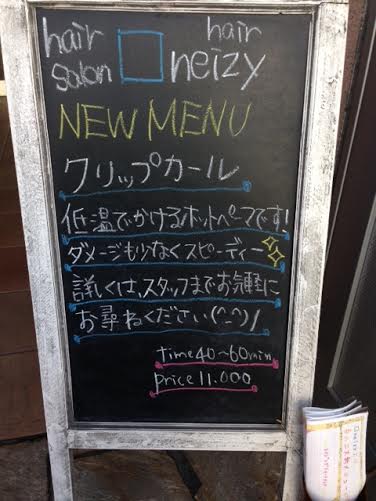 hair salon
hair neizy
NEW MENU
クリップカール
低温でかけるホットパーマです!
ダメージも少なくスピーディー
詳しくは、スタッフまでお気軽に
お尋ねください(^-^)/
time 40～60min
price 11.000